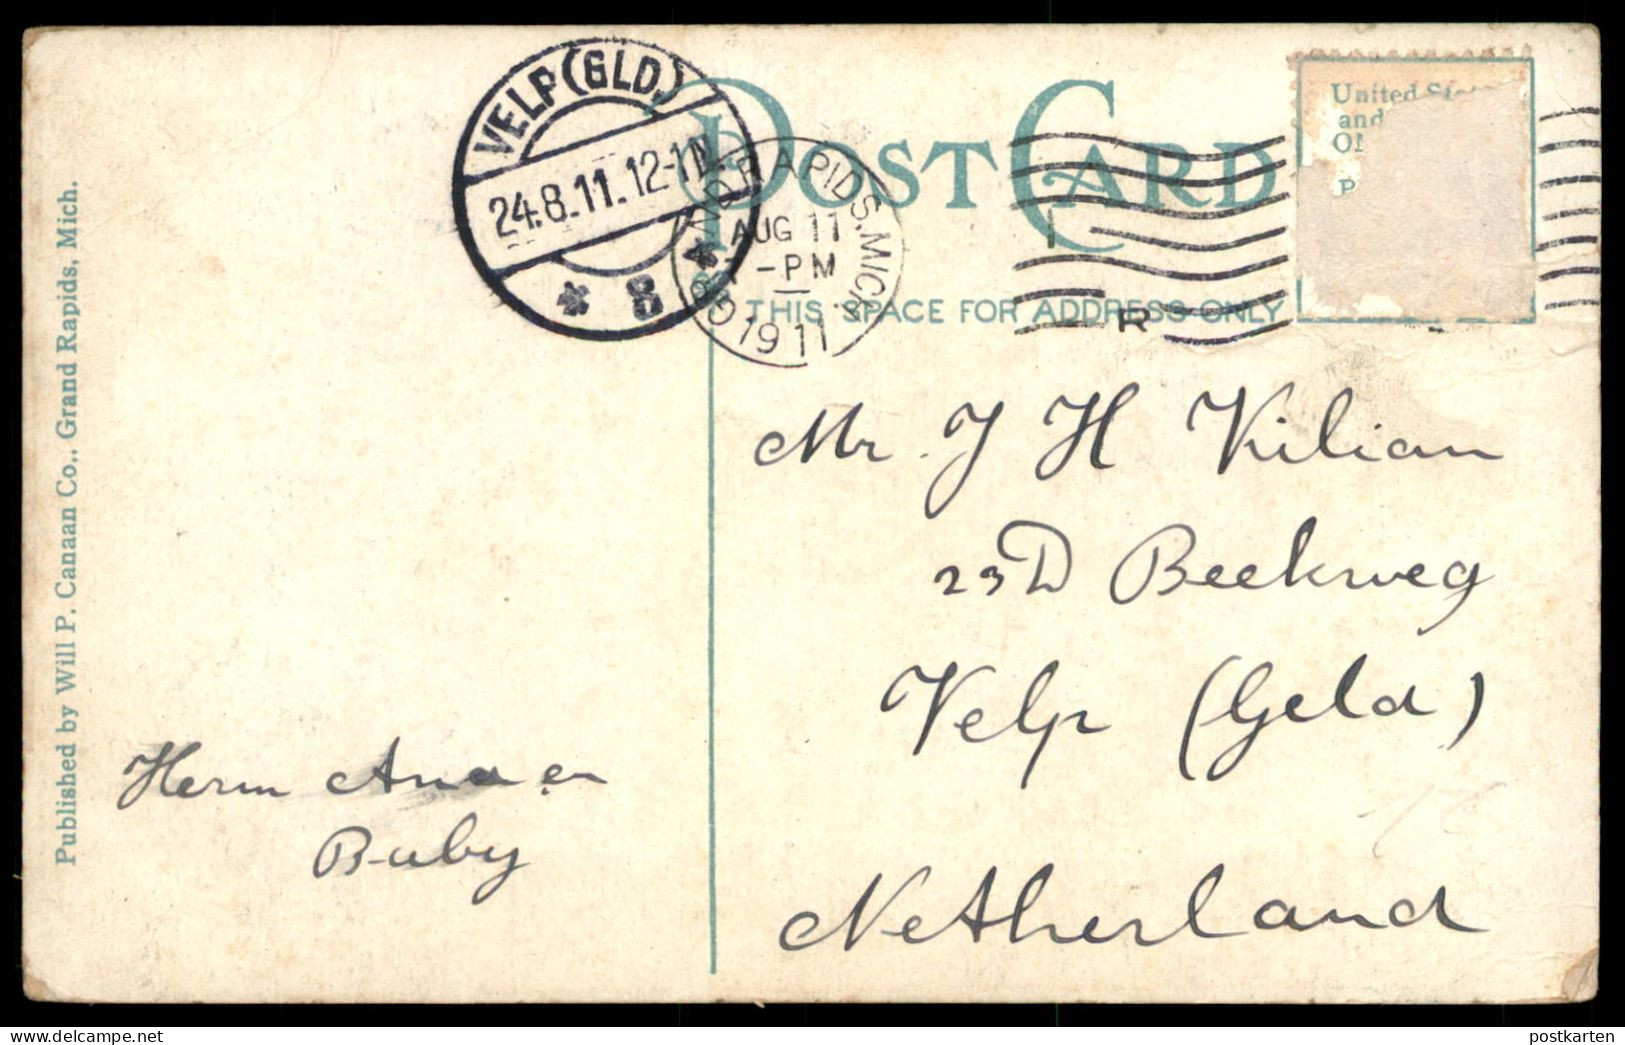 VELP (GLD.)
24.8.11. 12-1 N
* 8
POST CARD
GRAND RAPIDS, MICH.
AUG 11
-PM
1911
THIS SPACE FOR ADDRESS ONLY
R
United
and
Published by Will P. Canaan Co., Grand Rapids, Mich.
Mr. J H Kilian
23D Beekweg
Velp (Geld)
Netherland
Herm Anna en
Baby
postkarten